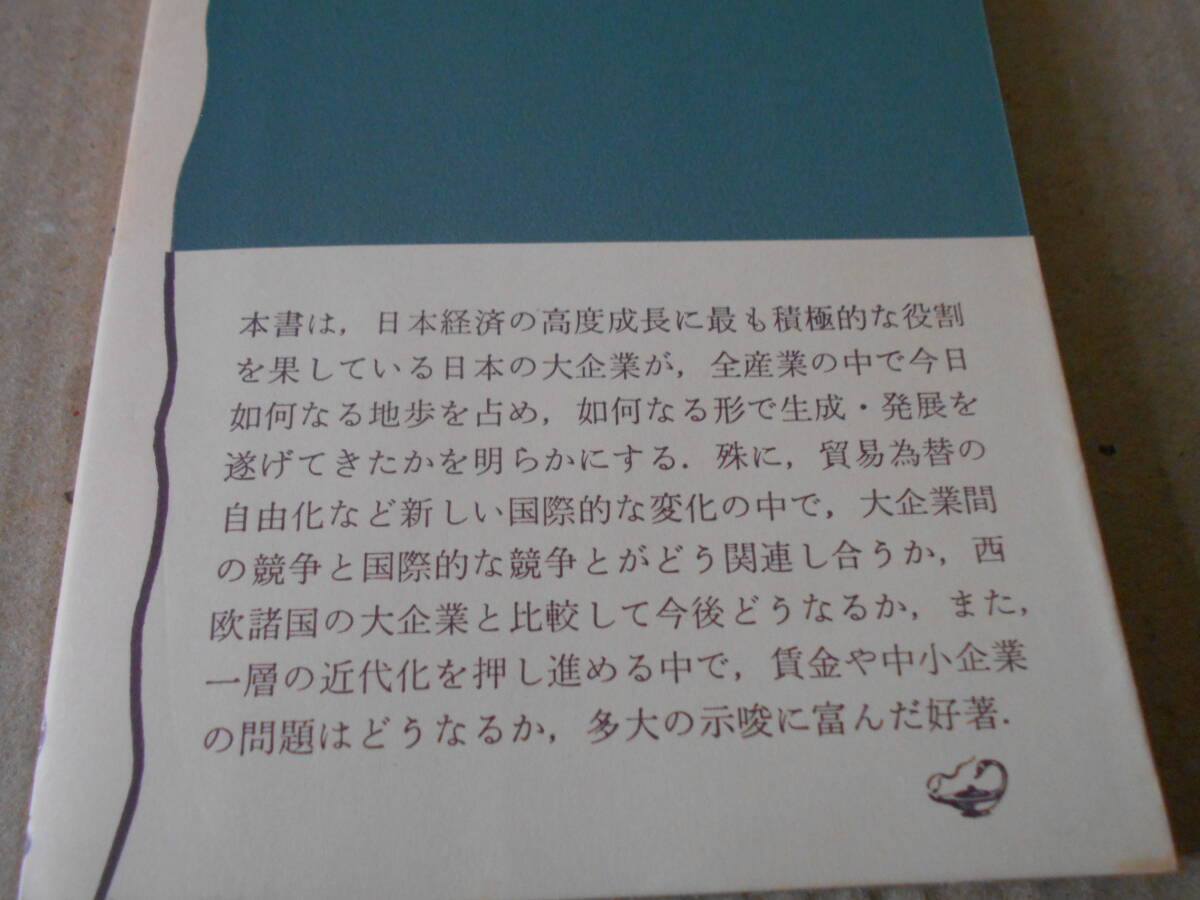 本書は，日本経済の高度成長に最も積極的な役割
を果している日本の大企業が，全産業の中で今日
如何なる地歩を占め，如何なる形で生成・発展を
遂げてきたかを明らかにする．殊に，貿易為替の
自由化など新しい国際的な変化の中で，大企業間
の競争と国際的な競争とがどう関連し合うか，西
欧諸国の大企業と比較して今後どうなるか，また，
一層の近代化を押し進める中で，賃金や中小企業
の問題はどうなるか，多大の示唆に富んだ好著．